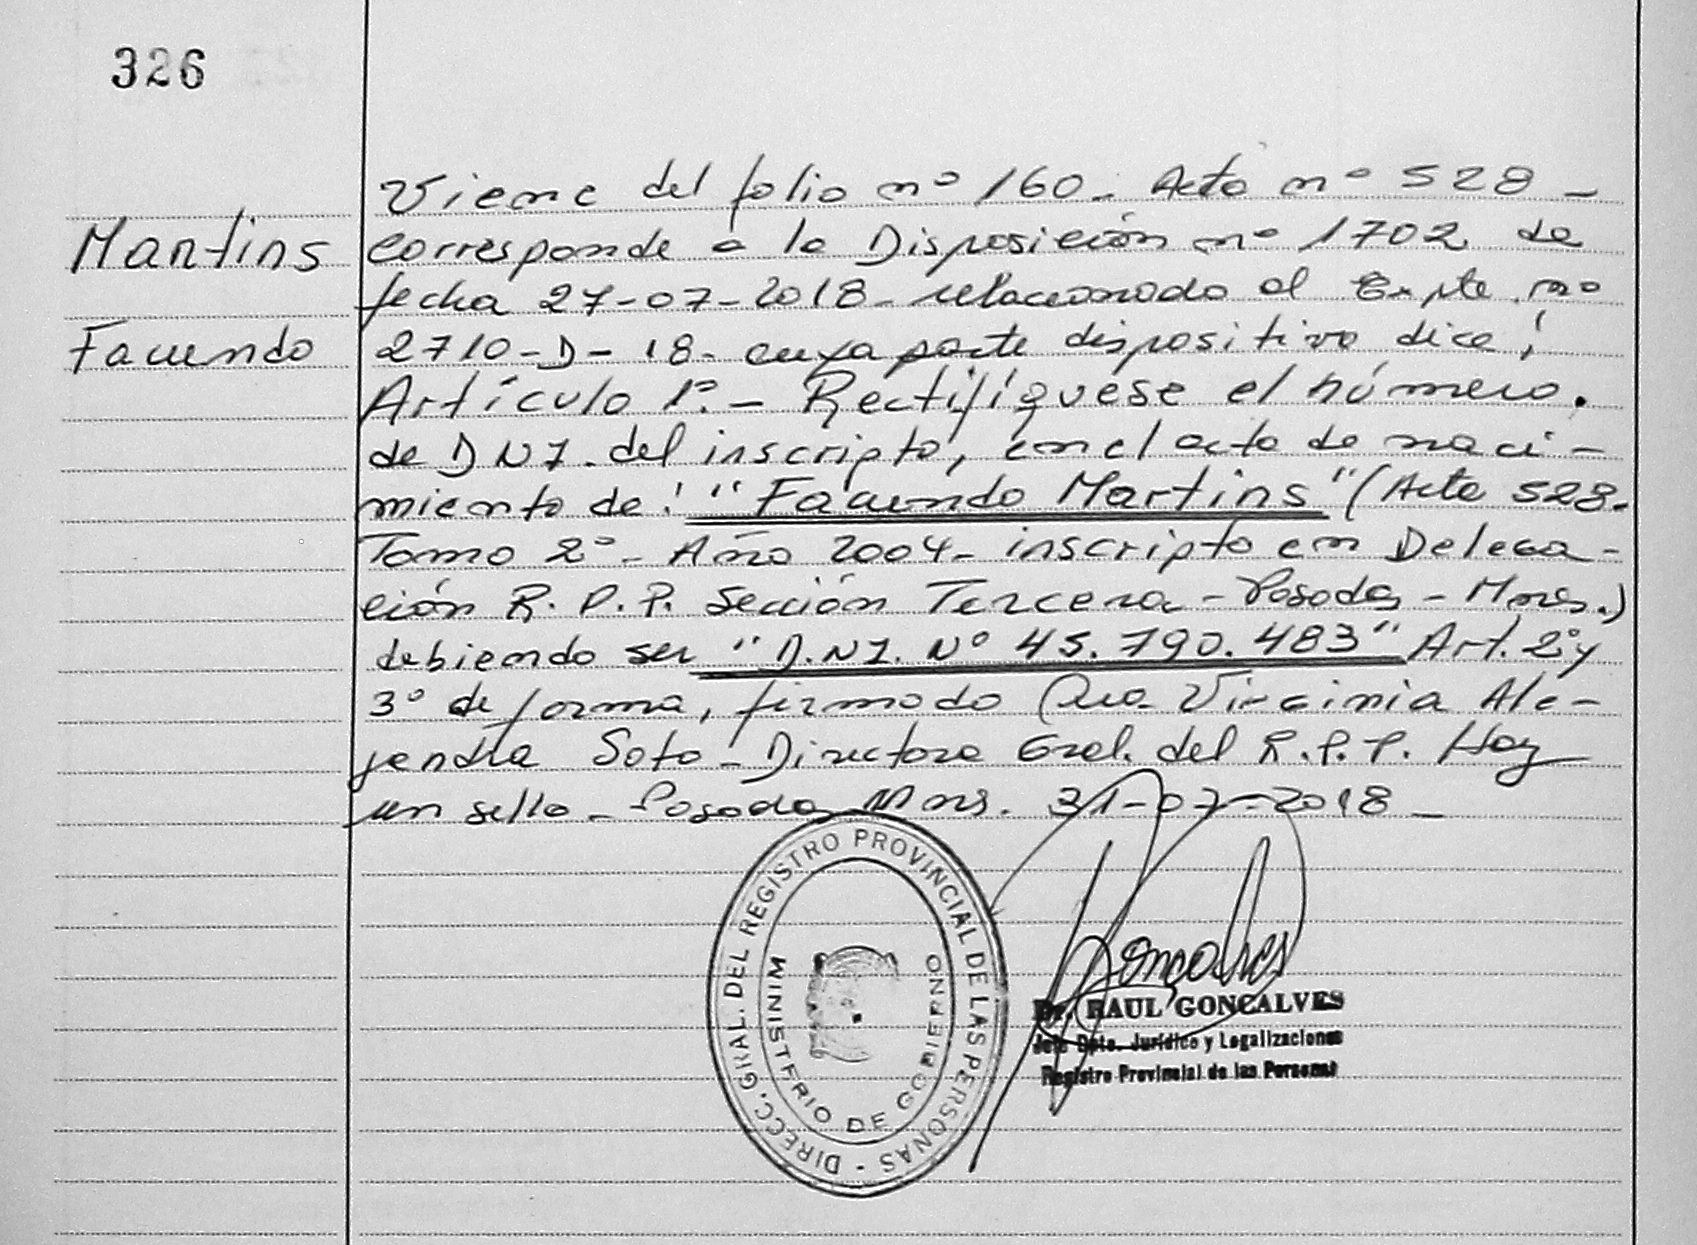 326
Martins
Facundo
Viene del folio nº 160 - Acta nº 528 -
Corresponde a la Disposición nº 1702 de
fecha 27-07-2018 - relacionado al Expte. nº
2710-D-18- cuya parte dispositiva dice:
Artículo 1º. - Rectifíquese el número.
de DNI. del inscripto, en el acta de naci-
miento de: "Facundo Martins" (Acta 528-
Tomo 2º - Año 2004 - inscripto en Delega-
ción R.P.P. Sección Tercera - Posadas - Mnes.)
debiendo ser "D.N.I. Nº 45.790.483" Art. 2º y
3º de forma, firmado Dra. Virginia Ale-
jandra Soto - Directora Gral. del R.P.P. Hay
un sello - Posadas Mns. 31-07-2018 -
DIRECC. GRAL. DEL REGISTRO PROVINCIAL DE LAS PERSONAS -
MINISTERIO DE GOBIERNO
Goncalves
Dr. RAUL GONCALVES
Jefe Dpto. Jurídico y Legalizaciones
Registro Provincial de las Personas